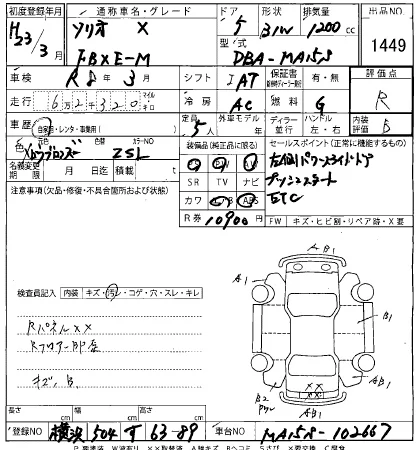 初度登録年月 通称車名・グレード ドア 形状 排気量 出品No
H23/3月 ソリオ X 5 B/W 1200 cc 1449
FBXE-M 型式 DBA-MA15S
車検 R8年3月 シフト IAT 保証書 有・無 評価点
走行 62320 冷房 AC 燃料 G R
車歴 自家用・レンタ・事業用 定員 5人 外車モデル ディーラー 並行 ハンドル 左・右 内装評価 B
色 色替 カラーNo ZSC 装備品(純正品に限る) セールスポイント(正常に機能するもの)
名義変更期限 月 日迄 積載 t SR TV ナビ 左側パワースライドドア
プッシュスタート
注意事項(欠品・修復・不具合箇所および状態) カワ ABS ETC
R券 10900円 FW キズ・ヒビ割・リペア跡・X要
AB1
検査員記入 内装 キズ・汚レ・コゲ・穴・スレ・キレ
RパネルXX B1
Rフロアー部歪 AB1
キズ、B B2
XX
AB1
長さ cm 幅 cm 高さ cm
登録No 横浜 504 す 63-89 車台No MA15S-102667